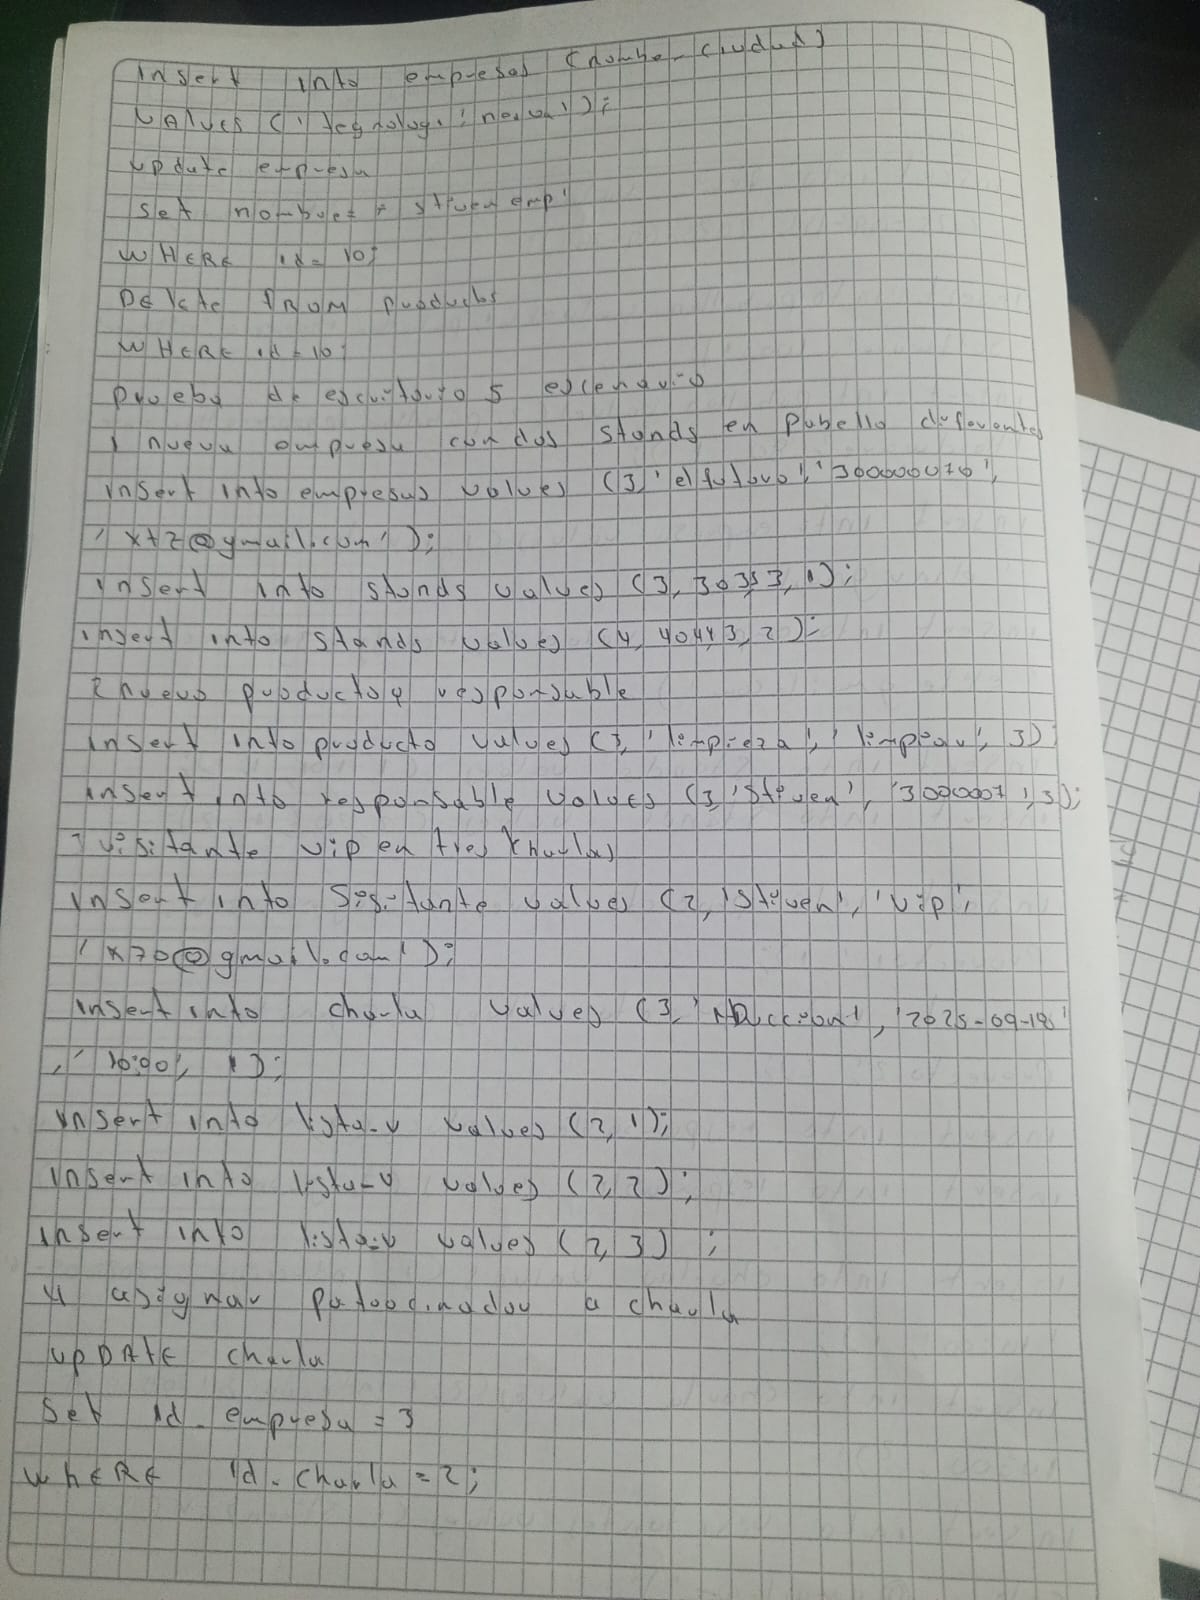 insert into empresas (nombre_ciudad)
VALUES ('tegnologi','neiva');
update empresa
set nombre = stiven emp'
WHERE id = 10;
DElete FROM products
WHERE id = 10;
prueba de escritorio 5 escenario
1 nueva empresa con dos stands en pabello diferentes
insert into empresas values (3,'el futuro','300000070',
'xtz@gmail.com');
insert into stands values (3, 303,3, 1);
insert into stands values (4, 404,3, 2);
2 nuevo producto y responsable
insert into producto values (3, 'limpieza', 'limpiar', 3)
insert into responsable values (3,'Stiven', '3000007',3);
3 visitante vip en tres charlas
insert into Sisitante values (2, 'Stiven', 'vip',
'x70@gmail.com');
insert into charla values (3, ', '2025-09-18'
, '10:00', 1);
insert into lista_v values (2, 1);
insert into lista_v values (2, 2);
insert into lista_v values (2, 3) ;
4 asignar patoocinador a charla
UPDATE charla
Set id_empresa = 3
WhERE id_charla = 2;